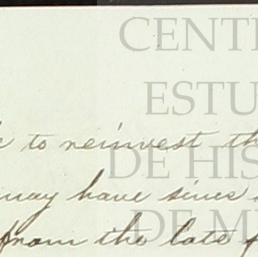 CENT
ESTU
to reinvest th
DE HIS
may have since
DE M
from the late